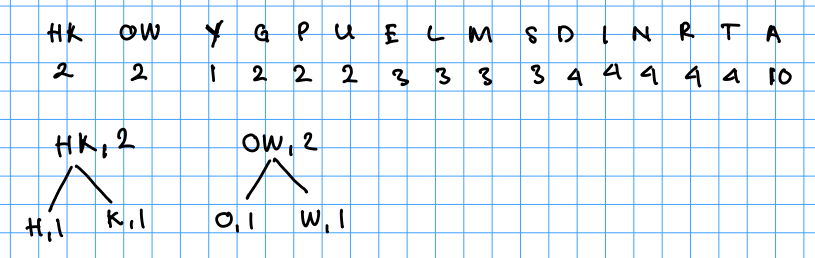 HK OW Y G P U E L M S D I N R T A
2 2 1 2 2 2 3 3 3 3 4 4 4 4 4 10
HK, 2 OW, 2
H, 1 K, 1 O, 1 W, 1